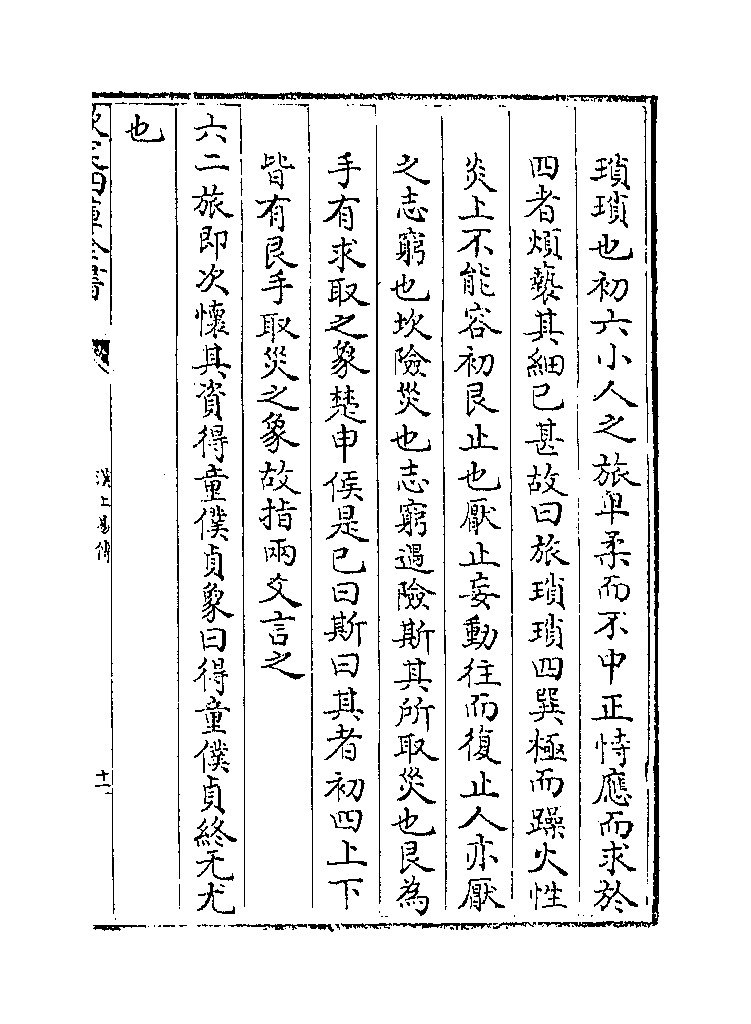 瑣瑣也初六小人之旅卑柔而不中正恃應而求於
四者煩褻其細已甚故曰旅瑣瑣四巽極而躁火性
炎上不能容初艮止也厭止妄動往而復止人亦厭
之志窮也坎險災也志窮遇險斯其所取災也艮為
手有求取之象楚申侯是已曰斯曰其者初四上下
皆有艮手取災之象故指兩爻言之
六二旅即次懷其資得童僕貞象曰得童僕貞終无尤
也
欽定四庫全書
漢上易傳
十一